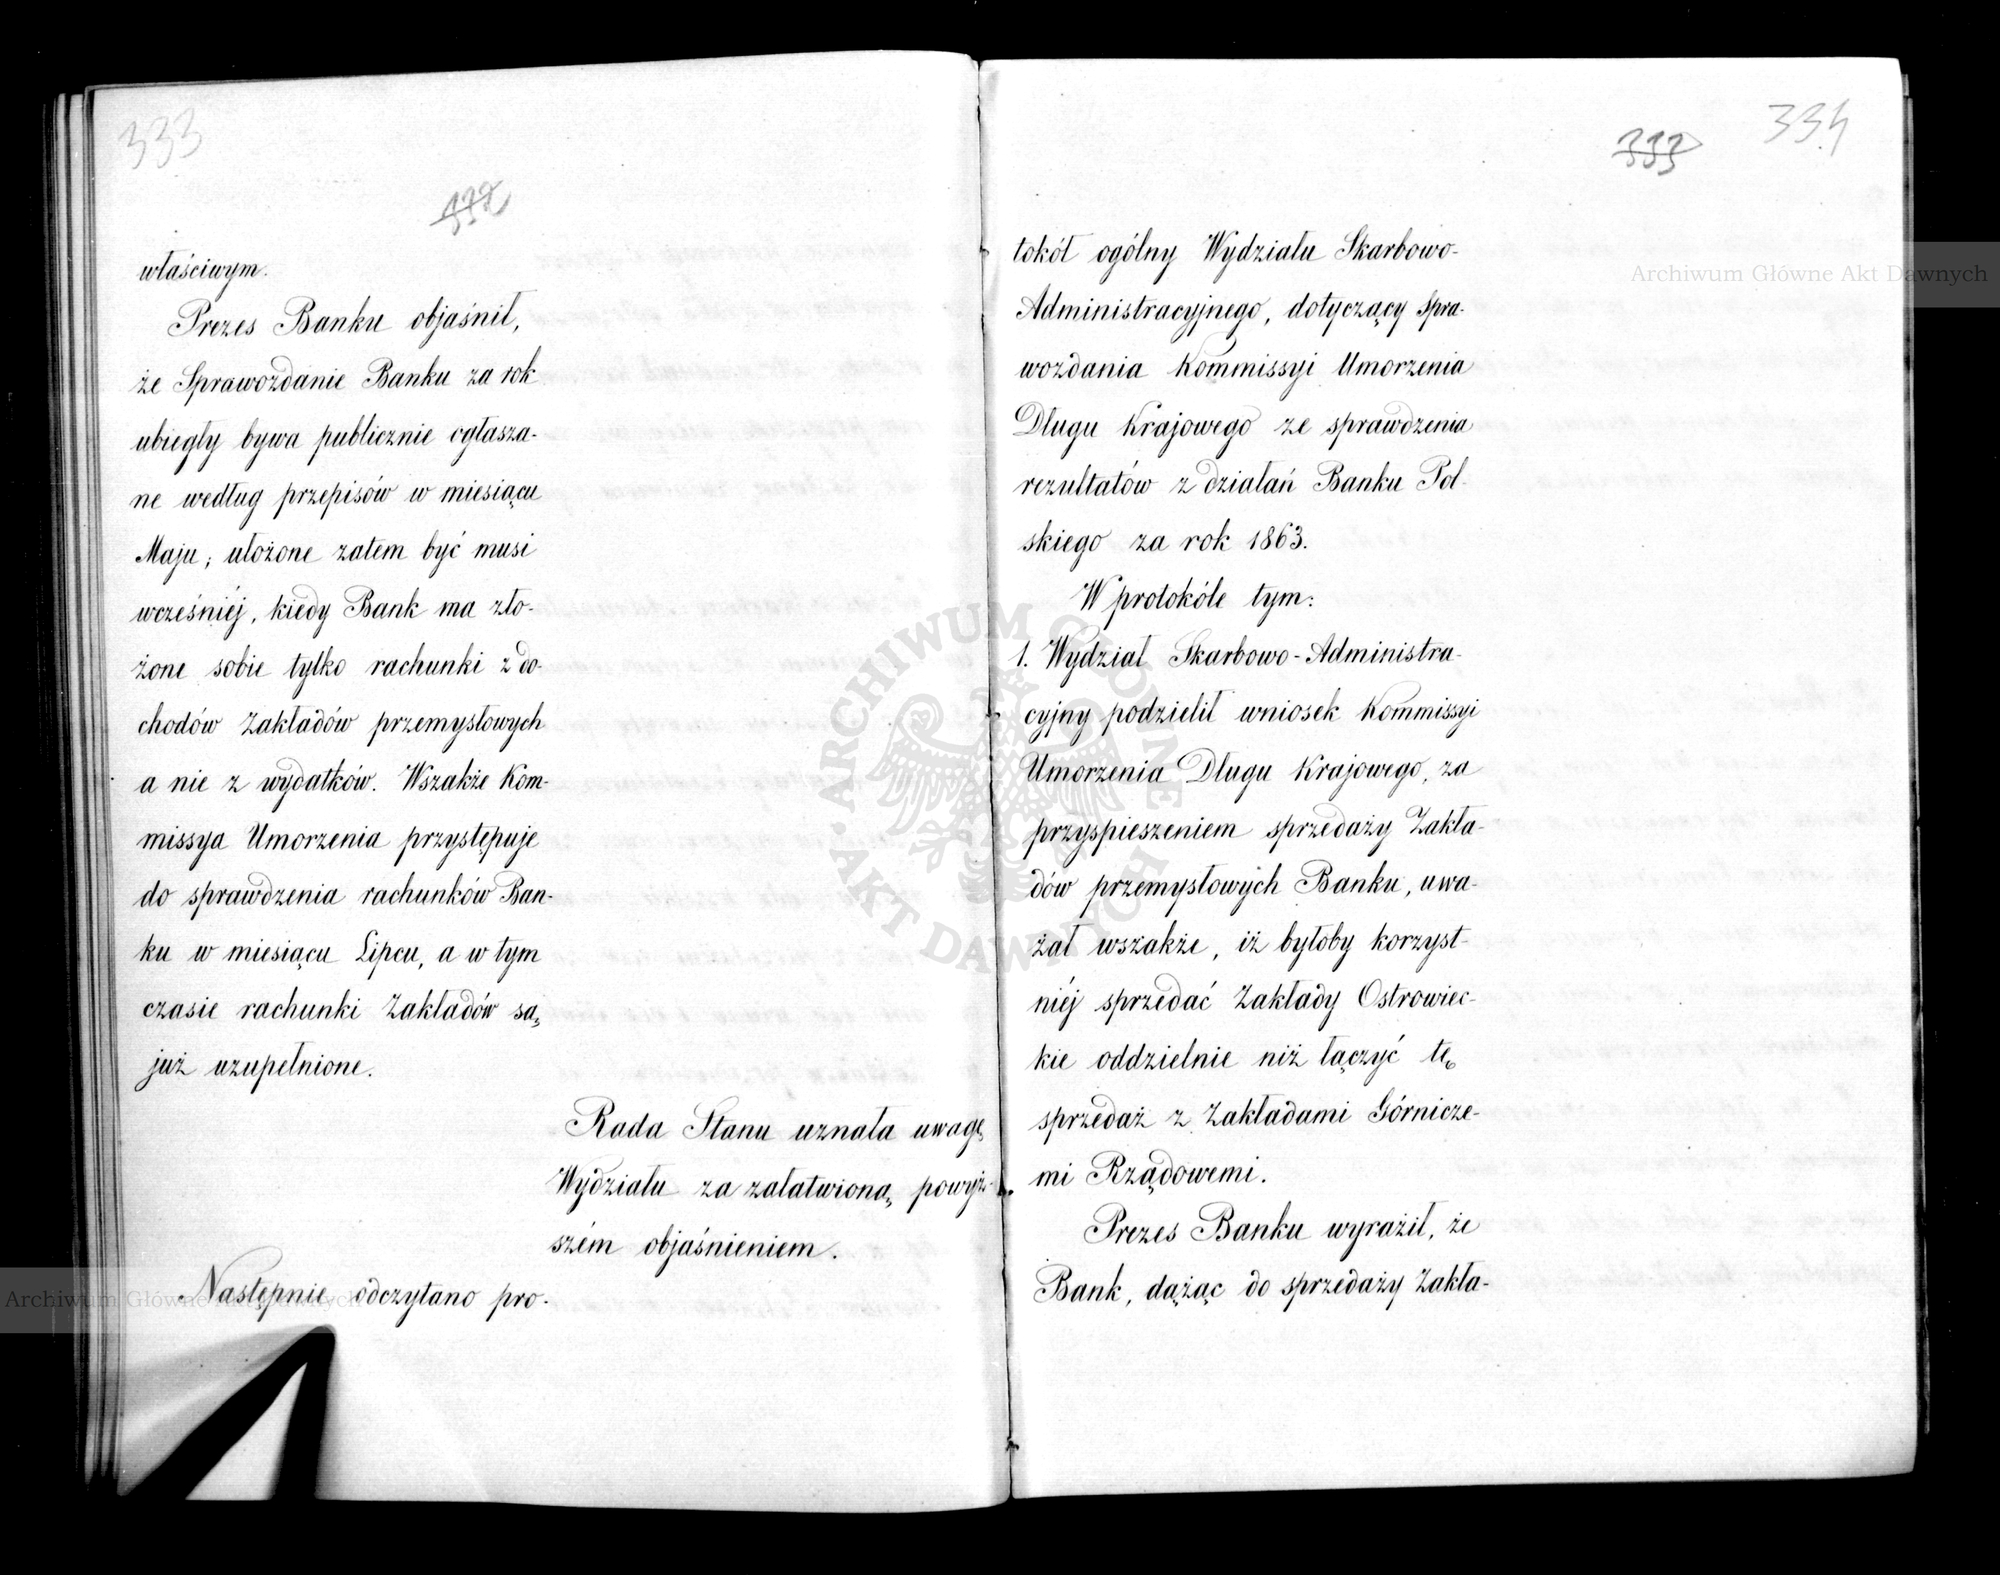 333
332
właściwym.
Prezes Banku objaśnił,
że Sprawozdanie Banku za rok
ubiegły bywa publicznie ogłasza-
ne według przepisów w miesiącu
Maju; ułożone zatem być musi
wcześniéj, kiedy Bank ma zło-
żone sobie tylko rachunki z do-
chodów Zakładów przemysłowych
a nie z wydatków. Wszakże Kom-
missya Umorzenia przystępuje
do sprawdzenia rachunków Ban-
ku w miesiącu Lipcu, a w tym
czasie rachunki Zakładów są
już uzupełnione.
Rada Stanu uznała uwagę
Wydziału za załatwioną powyż-
szém objaśnieniem.
Następnie odczytano pro-
333
334
tokół ogólny Wydziału Skarbowo-
Administracyjnego, dotyczący Spra-
wozdania Kommissyi Umorzenia
Długu Krajowego ze sprawdzenia
rezultatów z działań Banku Pol-
skiego za rok 1863.
W protokóle tym:
1. Wydział Skarbowo-Administra-
cyjny podzielił wniosek Kommissyi
Umorzenia Długu Krajowego, za
przyspieszeniem sprzedaży Zakła-
dów przemysłowych Banku, uwa-
żał wszakże, iż byłoby korzyst-
niéj sprzedać Zakłady Ostrowiec-
kie oddzielnie niż łączyć tę
sprzedaż z Zakładami Górnicze-
mi Rządowemi.
Prezes Banku wyraził, że
Bank, dążąc do sprzedaży Zakła-
Archiwum Główne Akt Dawnych
Archiwum Główne Akt Dawnych
ARCHIWUM GŁÓWNE
AKT DAWNYCH